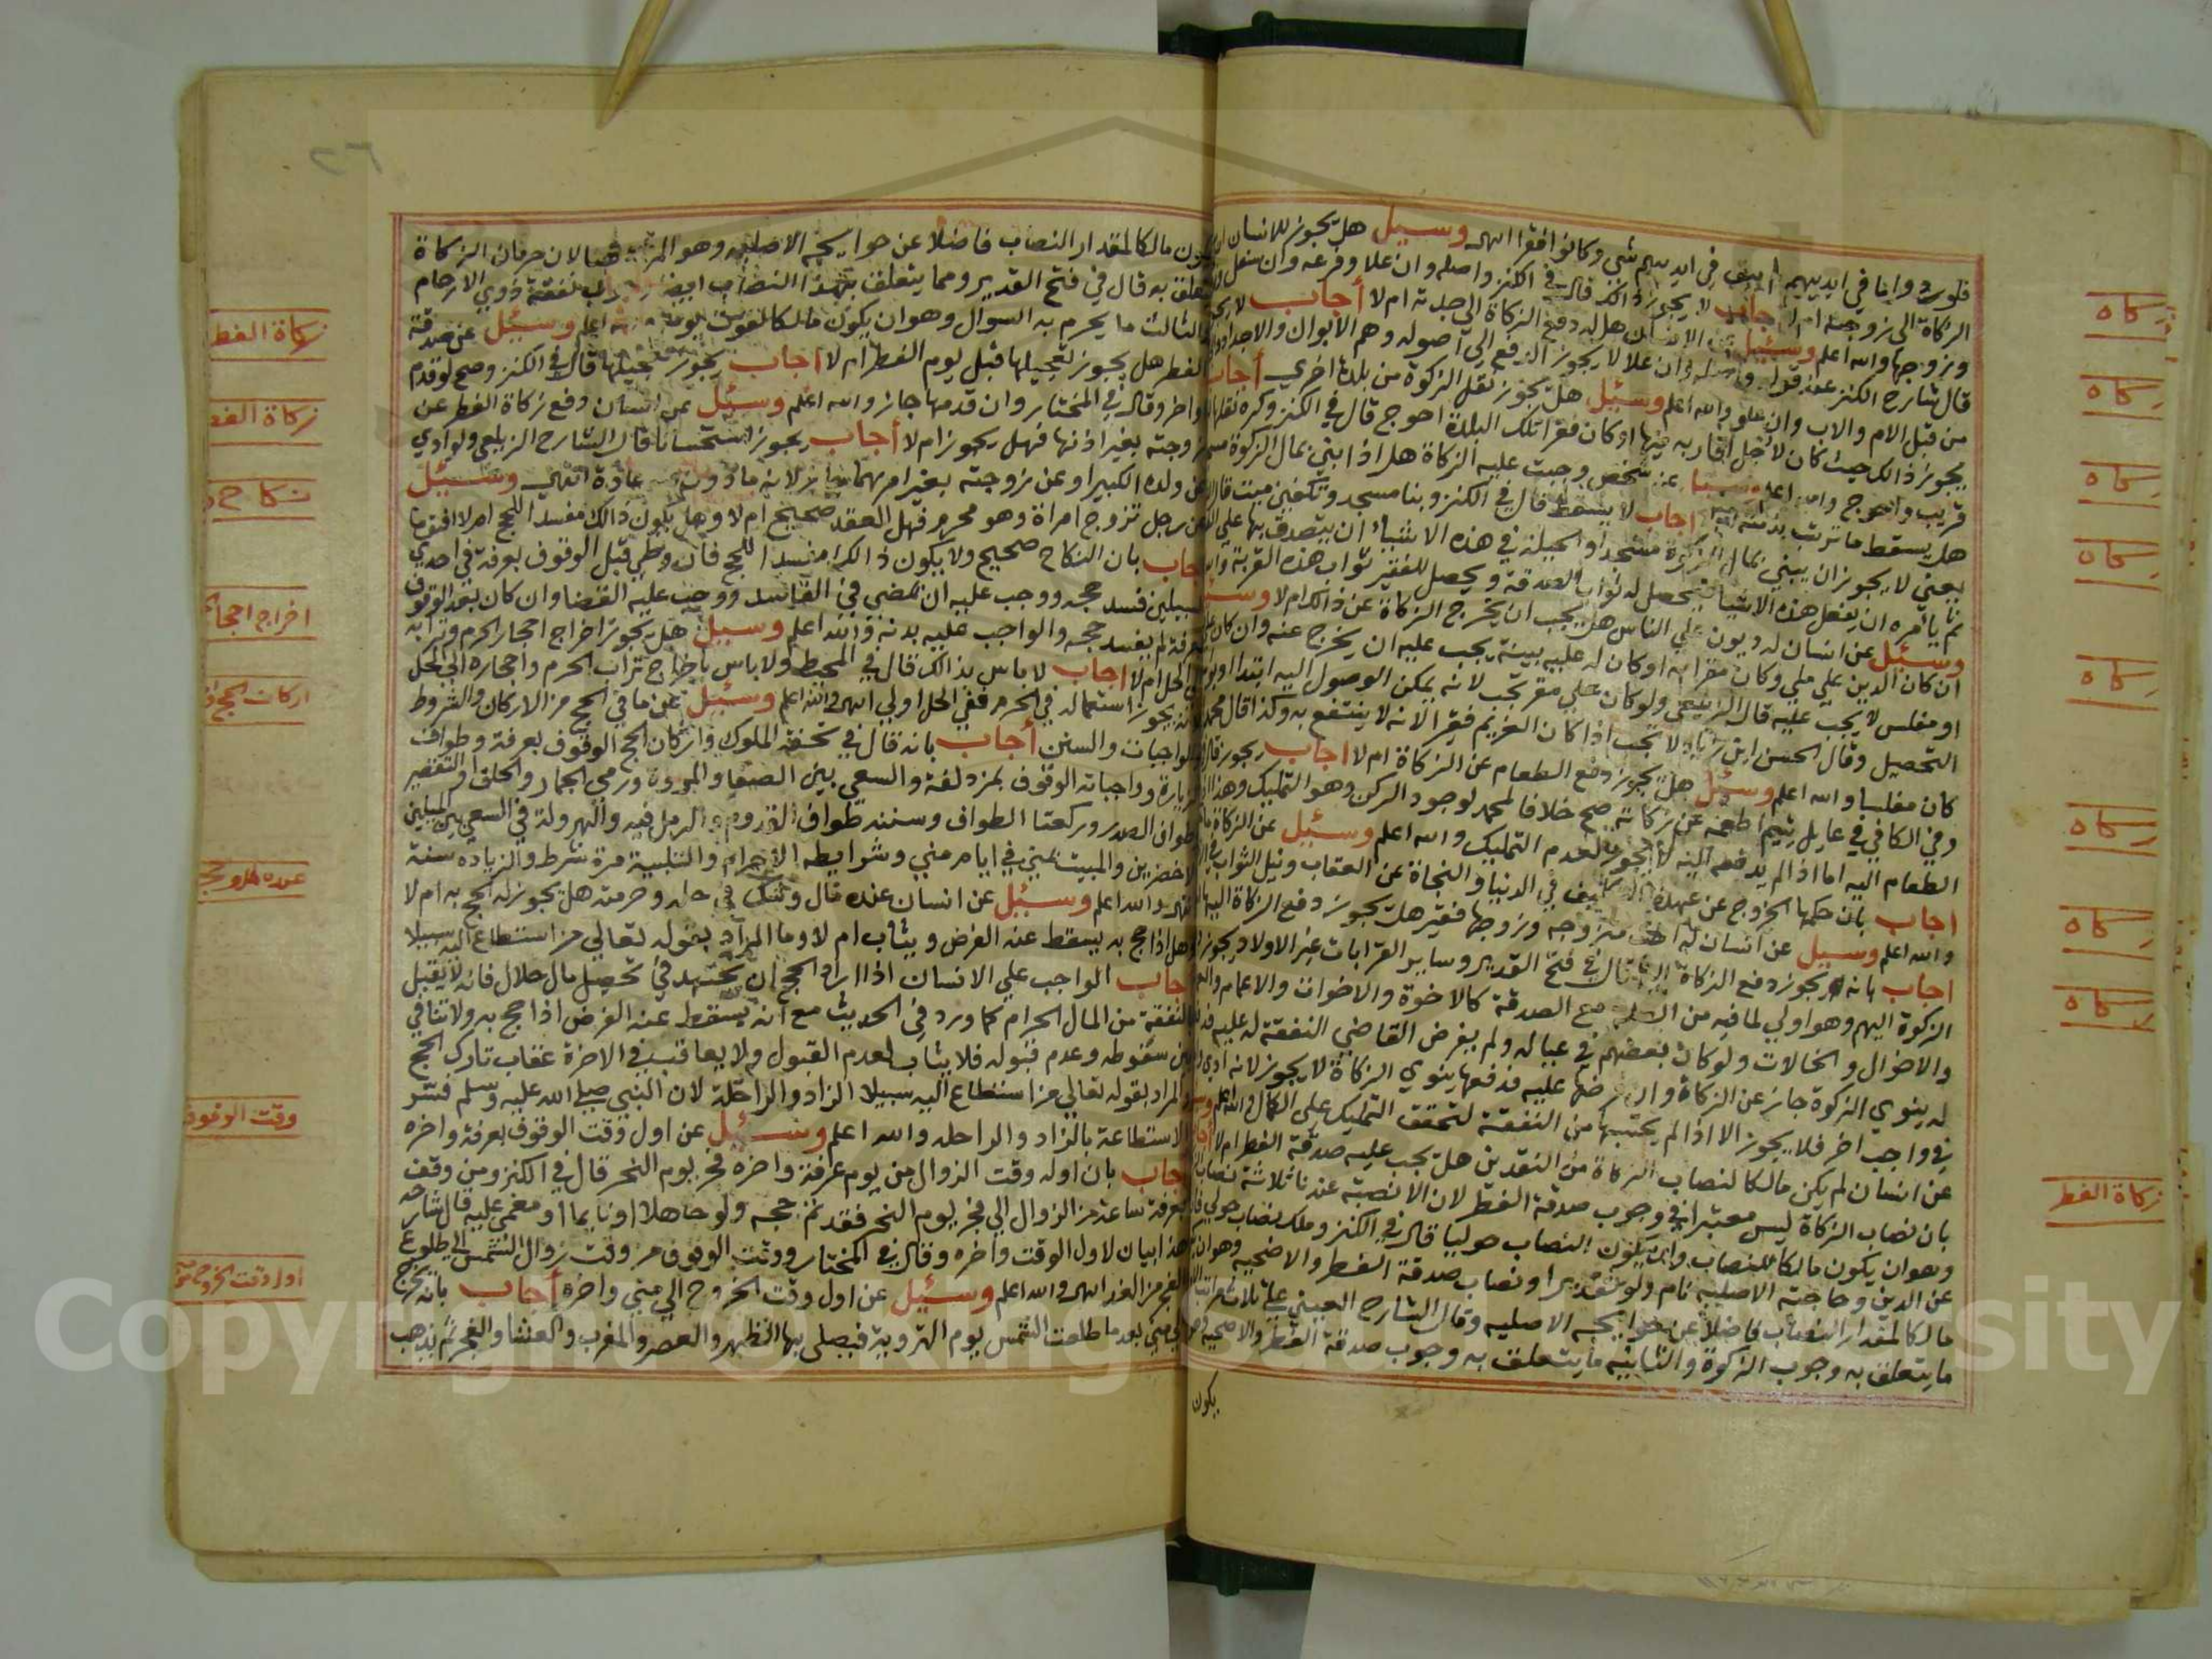 قلوبهم وانما في ايديهم شي وكانوا فقرا انتهى وسيل هل يجوز للانسان ان
الزكاة الى زوجته ام لا اجاب لا يجوز ذلك قال في الكنز واصله وان علا وفرعه وان سفل
وزوجها والله اعلم وسئيل عن الانسان هل له دفع الزكاة الى جدته ام لا أجاب لا
قال شارح الكنز عند قوله واصله وان علا لا يجوز الدفع الي اصوله وهم الابوان والاجداد
من قبل الام والاب وان علو والله اعلم وسئيل هل يجوز نقل الزكوة من بلدة اخري أجاب
يجوز ذالك حيث كان لاجل اقاربه فيها او كان فقرا تلك البلدة احوج قال في الكنز وكره نقلها
قريب واحوج والله اعلم وسئيل عن شخص وجبت عليه الزكاة هل اذا ابني بمال الزكوة مسجد
هل يسقط ما ترتب بذمته اجاب لا يسقط قال في الكنز وبنا مسجد وتكفين ميت قال
يعني لا يجوز ان يبني بمال الزكوة مسجدا والحيلة في هذه الاشياء ان يتصدق بها علي
ثم يامره ان يفعل هذه الاشياء فيحصل له ثواب الصدقة ويحصل للفقير ثواب هذه القربة
وسئيل عن انسان له ديون علي الناس هل يجب ان يخرج الزكاة عن ذالك ام لا
ان كان الدين علي ملي وكان مقرا به او كان له عليه بينة يجب عليه ان يخرج عنه وان كان
او مفلس لا يجب عليه قال الزيلعي ولو كان علي مقر تجب لانه يمكن الوصول اليه ابتدا او
التحصيل وقال الحسن ابن زياد لا تجب اذا كان الغريم فقيرا لانه لا ينتفع به وكذا قال محمد
كان مفلسا والله اعلم وسئيل هل يجوز دفع الطعام عن الزكاة ام لا اجاب يجوز
وفي الكافي في عايل يتيم اطعمه عن زكاته صح خلافا لمحمد لوجود الركن وهو التمليك وهذا
الطعام اليه اما اذا لم يدفعه اليه لا يجوز لعدم التمليك والله اعلم وسئيل عن الزكاة
اجاب بان حكمها الخروج عن عهدة التكليف في الدنيا والنجاة عن العقاب ونيل الثواب
والله اعلم وسيل عن انسان له اخت متزوجه وزوجها فقير هل يجوز دفع الزكاة اليها
اجاب بانه يجوز دفع الزكاة اليها قال في فتح القدير وساير القرابات غير الاولاد يجوز
الزكوة اليهم وهو اولي لما فيه من الصلة مع الصدقة كالاخوة والاخوات والاعمام
والاخوال والخالات ولو كان بعضهم في عياله ولم يفرض القاضي النفقة له عليه
له ينوي الزكوة جاز عن الزكاة وان فرضها عليه فدفعها ينوي الزكاة لا يجوز لانه ادي
في واجب اخر فلا يجوز الا اذا لم يحتسبها من النفقة لتحقق التمليك علي الكمال والله اعلم
عن انسان لم يكن مالكا لنصاب الزكاة من النقدين هل يجب عليه صدقة الفطر ام لا
بان نصاب الزكاة ليس معتبرا في وجوب صدقة الفطر لان الانصبة عندنا ثلاثة نصاب
وهو ان يكون مالكا للنصاب وان يكون النصاب حوليا قال في الكنز وملك نصاب حولي
عن الدين وحاجته الاصليه نام ولو تقديرا ونصاب صدقة الفطر والاضحيه وهو ان
مالكا لمقدار النصاب فاضلا عن حوايجه الاصليه وقال الشارح العيني علي ثلاث مراتب
ما يتعلق به وجوب الزكوة والثانيه ما يتعلق به وجوب صدقة الفطر والاضحيه
يكون
كاه
كاه
كاه
كاه
كاه
كاه
كاه
كاه
زكاة الفط
٢٦
يكون مالكا لمقدار النصاب فاضلا عن حوايجه الاصليه وهو المراد هنا لان حرمان الزكاة
يتعلق به قال في فتح القدير ومما يتعلق بهذا النصاب ايضا وجوب نفقة ذوي الارحام
والثالث ما يحرم به السوال وهو ان يكون مالكا لقوت يومه والله اعلم وسئيل عن صدقة
الفطر هل يجوز تعجيلها قبل يوم الفطر ام لا اجاب يجوز تعجيلها قال في الكنز وصح لو قدم
او اخر وقال في المختار وان قدمها جاز والله اعلم وسئيل عن انسان دفع زكاة الفطر عن
زوجته بغير اذنها فهل يجوز ام لا أجاب يجوز استحسانا قال الشارح الزيلعي ولو ادي
عن ولده الكبير او عن زوجته بغير امرهما جاز لانه ماذون فيه عادة انتهي وسئيل
عن رجل تزوج امراة وهو محرم فهل العقد صحيح ام لا وهل يكون ذالك مفسدا للحج ام لا افتونا
اجاب بان النكاح صحيح ولا يكون ذالك مفسدا للحج فان وطي قبل الوقوف بعرفة في احدي
السبيلين فسد حجه ووجب عليه ان يمضي في الفاسد ووجب عليه القضا وان كان بعد الوقوف
بعرفة لم يفسد حجه والواجب عليه بدنة والله اعلم وسيل هل يجوز اخراج احجار الحرم وترابه
الي الحل ام لا اجاب لا باس بذالك قال في المحيط ولا باس باخراج تراب الحرم واحجاره الي الحل
لانه يجوز استعماله في الحرم ففي الحل اولي انتهي والله اعلم وسئيل عن ما في الحج من الاركان والشروط
والواجبات والسنن أجاب بانه قال في تحفة الملوك واركان الحج الوقوف بعرفة وطواف
الزيارة وواجباته الوقوف بمزدلفة والسعي بين الصفا والمروة ورمي الجمار والحلق او التقصير
وطواف الصدر وركعتا الطواف وسننه طواف القدوم والرمل فيه والهرولة في السعي بين الميلين
الاخضرين والمبيت بمني في ايام مني وشرايطه الاحرام والتلبية مرة شرط والزيادة سنة
انتهي والله اعلم وسئيل عن انسان عنده مال وشك في حله وحرمته هل يجوز له الحج به ام لا
وهل اذا حج به يسقط عنه الفرض ويثاب ام لا وما المراد بقوله تعالي من استطاع اليه سبيلا
اجاب الواجب علي الانسان اذا اراد الحج ان يجتهد في تحصيل مال حلال فانه لا يقبل
النفقة من المال الحرام كما ورد في الحديث مع انه يسقط عنه الفرض اذا حج به ولا تنافي
بين سقوطه وعدم قبوله فلا يثاب لعدم القبول ولا يعاقب في الاخرة عقاب تارك الحج
والمراد بقوله تعالي من استطاع اليه سبيلا الزاد والراحلة لان النبي صلي الله عليه وسلم فسر
الاستطاعة بالزاد والراحله والله اعلم وسئيل عن اول وقت الوقوف بعرفة واخره
اجاب بان اوله وقت الزوال من يوم عرفة واخره فجر يوم النحر قال في الكنز ومن وقف
بعرفة ساعة من الزوال الي فجر يوم النحر فقد تم حجه ولو جاهلا او نايما او مغمي عليه قال شارحه
هذا بيان لاول الوقت واخره وقال في المختار ووقت الوقوف من وقت زوال الشمس الي طلوع
الفجر من الغد انتهي والله اعلم وسئيل عن اول وقت الخروج الي مني واخره أجاب بانه يخرج
الي مني بعد ما طلعت الشمس يوم التروية فيصلي بها الظهر والعصر والمغرب والعشا والفجر ثم يذهب
زكاة الفط
زكاة الفط
نكاح
اخراج احجا
اركان الحج
عنده مال
وقت الوقوف
اول وقت الخروج
Copyright © King Saud University